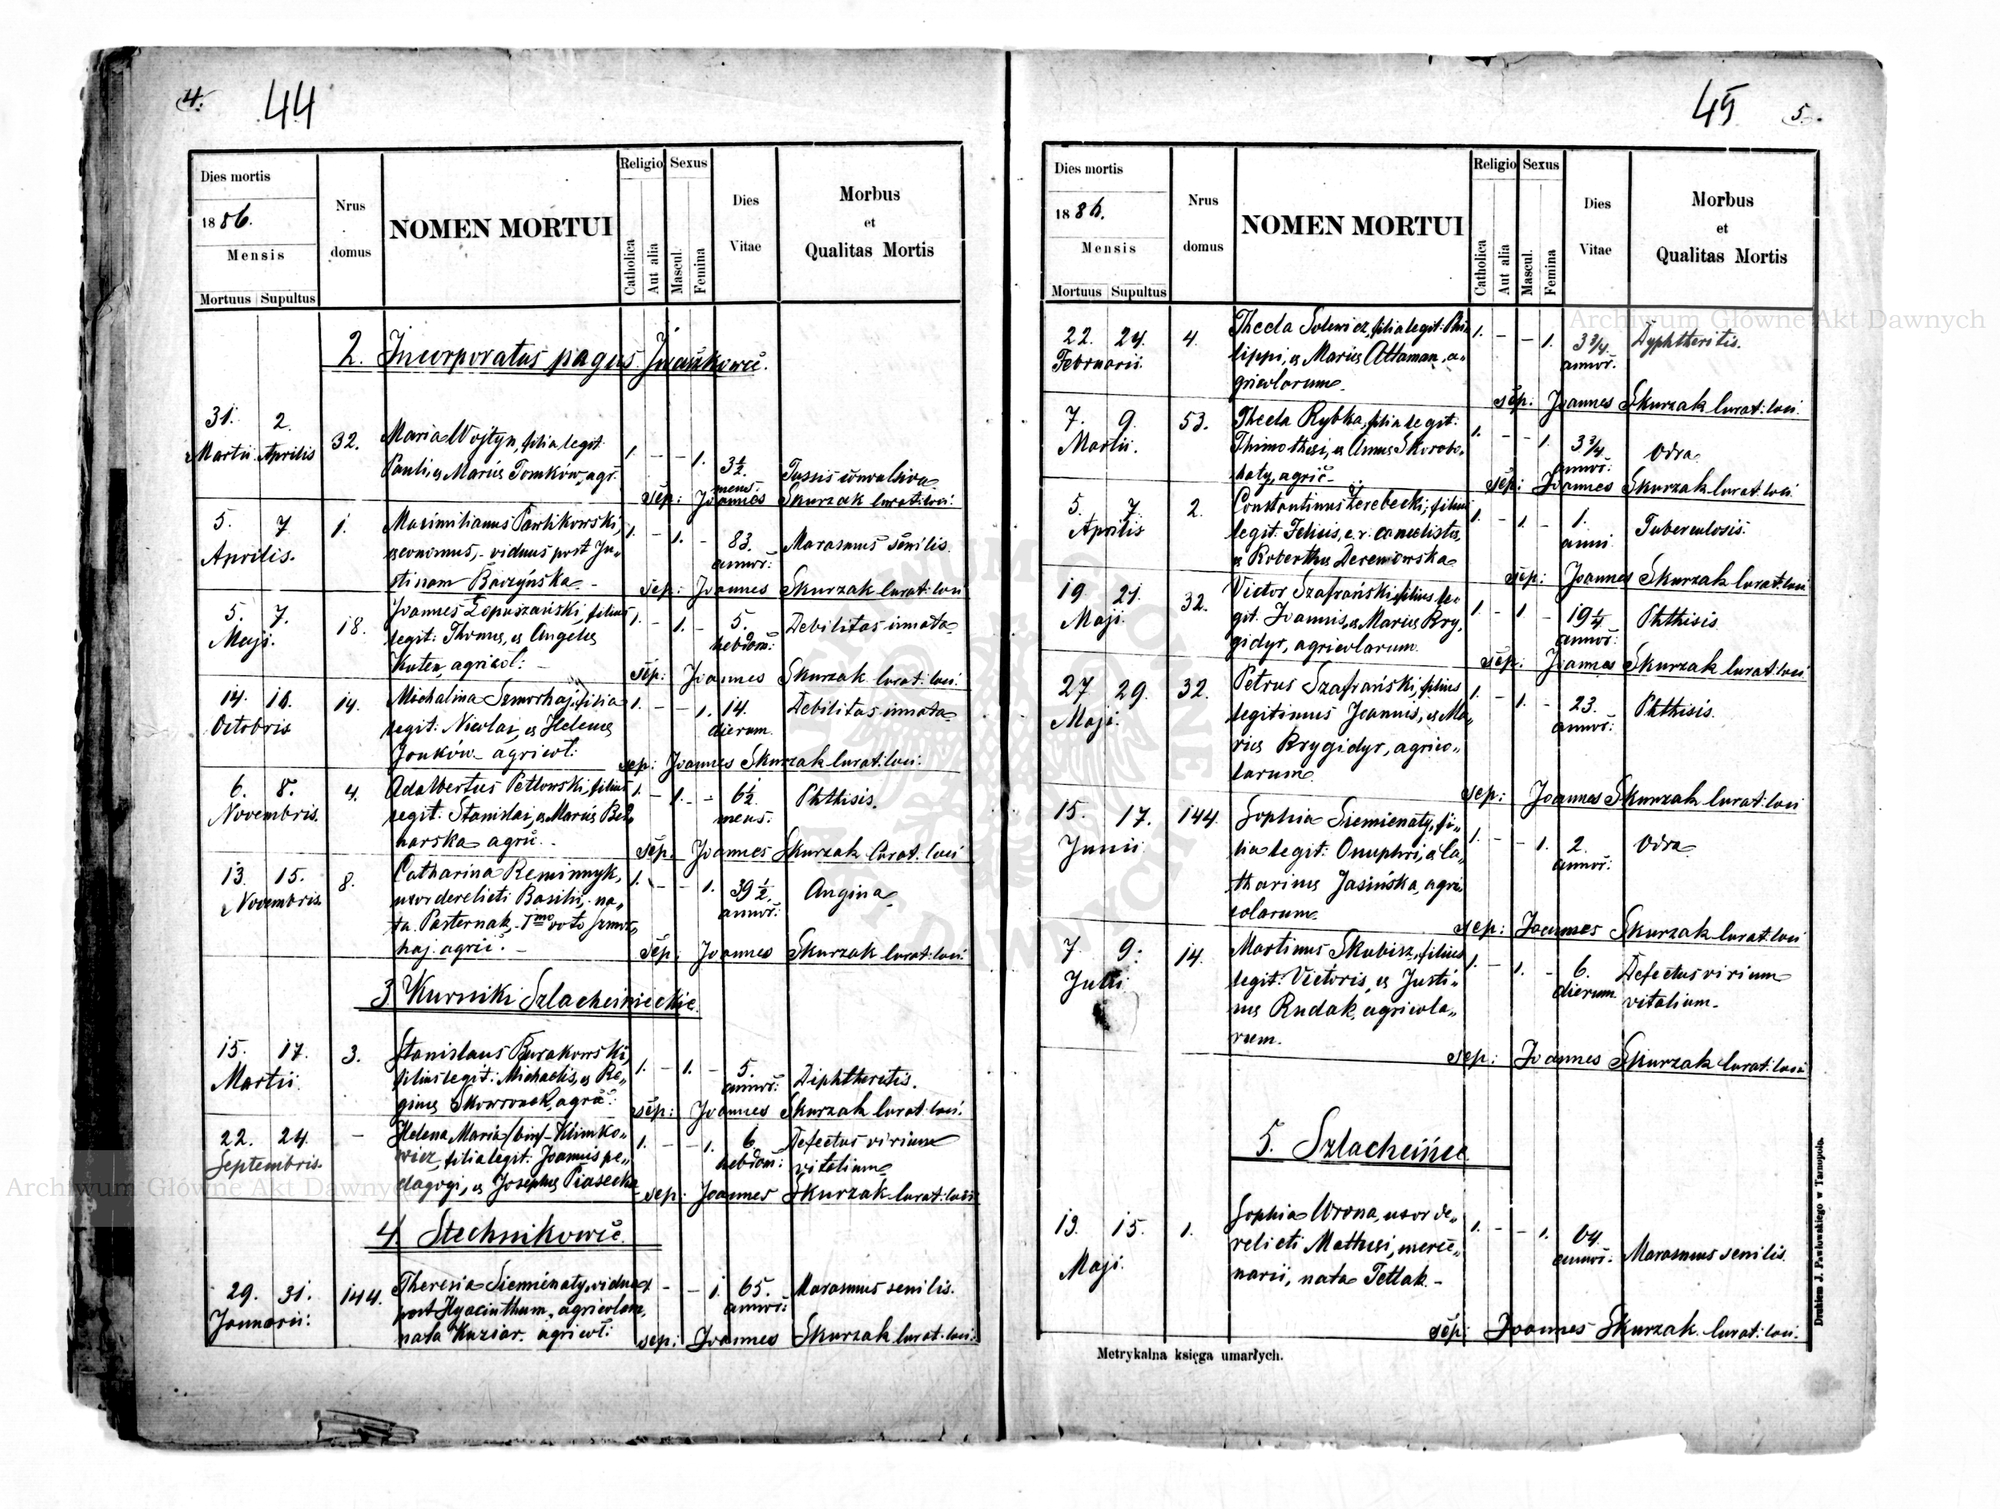 4.
44
Dies mortis
1886.
Mensis
Mortuus Supultus
Nrus
domus
NOMEN MORTUI
Religio
Catholica
Aut alia
Sexus
Mascul.
Femina
Dies
Vitae
Morbus
et
Qualitas Mortis
2. Incorporatus pagus
31. 2. 32. Maria Wojtyn, filia legit.
Martii Aprilis Pauli, & Mariæ Tomków, agr. 1. – – 1. 3½ mens. Tussis convulsiva
sep: Joannes Skurzak curat: loci
5. 7 1. Maximilianus Pawlikowski,
Aprilis. oeconomus, - viduus post Ju- 1. – 1. – 83. annor: Marasmus senilis.
stinam Baczyńska –
sep: Joannes Skurzak curat: loci
5. 7. 18. Joannes Łopuszański, filius
Maji. legit: Thomæ, & Angelæ 1. – 1. – 5. hebdom: Debilitas innata
Kuten, agricol: –
sep: Joannes Skurzak curat: loci
14. 16. 14. Michalina Szmorhaj, filia
Octobris legit: Nicolai, & Helenæ 1. – – 1. 14. dierum. Debilitas innata
Jonków – agricol:
sep: Joannes Skurzak curat: loci.
6. 8. 4. Adalbertus Petlowski, filius
Novembris. legit: Stanislai, & Mariæ 1. – 1. – 6½ mens: Phthisis.
sep. Joannes Skurzak Curat: loci
13. 15. 8. Catharina Reminnyk,
Novembris uxor derelicti Basilii, na- 1. – – 1. 39½ annor: Angina
ta Pasternak, - 1mo voto Szmor-
haj agric: –
sep: Joannes Skurzak curat: loci
3 Kurniki Szlachcinieckie.
15. 17. 3. Stanislaus Burakowski,
Martii filius legit: Michaelis, & Re- 1. – 1. – 5. annor: Diphtheritis.
ginæ Skowronek, agric:
sep: Joannes Skurzak curat: loci.
22. 24. – Helena Maria /bin/ – Klimko-
Septembris. wicz, filia legit. Joannis pe- 1. – – 1. 6. hebdom: Defectus virium
dagogi, & Josephæ Piasecka vitalium
sep: Joannes Skurzak curat: loci
4. Stechnikowce.
29. 31. 144. Theresia Siemienaty, vidua
Januarii: post Hyacinthum, agricolam, – – 1. 65. annor: Marasmus senilis.
nata Kuziar. agricol:
sep: Joannes Skurzak curat: loci.
45
5.
Dies mortis
1886.
Mensis
Mortuus Supultus
Nrus
domus
NOMEN MORTUI
Religio
Catholica
Aut alia
Sexus
Mascul.
Femina
Dies
Vitae
Morbus
et
Qualitas Mortis
22. 24. 4. Thecla Solewicz, filia legit: Phi-
Februarii. lippi, & Mariæ Attaman, a- 1. – – 1. 3¾ annor: Dyphtheritis.
gricolarum
sep: Joannes Skurzak curat: loci
7. 9. 53. Thecla Rybka, filia legit:
Martii. Thimothei, & Annæ Skorobo- 1. – – 1. 3¾ annor: Odra
haty, agric:
sep: Joannes Skurzak curat: loci
5. 7. 2. Constantinus Żerebecki, filius
Aprilis legit. Felicis, c. r. cancelistæ, 1. – 1 – 1. anni. Tuberculosis.
& Roberthæ Deremowska
sep: Joannes Skurzak curat: loci
19 21. 32. Victor Szafrański, filius le-
Maji. git. Joannis, & Mariæ Kry- 1. – 1 – 19¼ annor: Phthisis
gidyr, agricolarum.
sep: Joannes Skurzak curat: loci
27 29. 32. Petrus Szafrański, filius
Maji. legitimus Joannis, & Ma- 1. – 1. – 23. annor: Phthisis.
riæ Krygidyr, agrico-
larum.
sep: Joannes Skurzak curat: loci
15. 17. 144. Sophia Siemienaty, fi-
Junii lia legit: Onuphri, & Ca- 1. – – 1. 2. annor: Odra
tharinæ Jasińska, agri
colarum
sep: Joannes Skurzak curat: loci
7 9: 14. Martinus Skubisz, filius
Julii legit: Victoris, & Justi- 1. – 1. – 6. dierum Defectus virium
næ Rudak, agricola- vitalium –
rum.
sep: Joannes Skurzak curat: loci
5. Szlachcińce
13 15. 1. Sophia Wrona, uxor de-
Maji. relicti Matthæi, merce- 1. – – 1. 64. annor: Marasmus senilis.
narii, nata Tetlak –
sep: Joannes Skurzak. curat: loci.
Metrykalna księga umarłych.
Drukiem J. Pawłowskiego w Tarnopolu.
Archiwum Główne Akt Dawnych
Archiwum Główne Akt Dawnych
ARCHIWUM GŁÓWNE AKT DAWNYCH